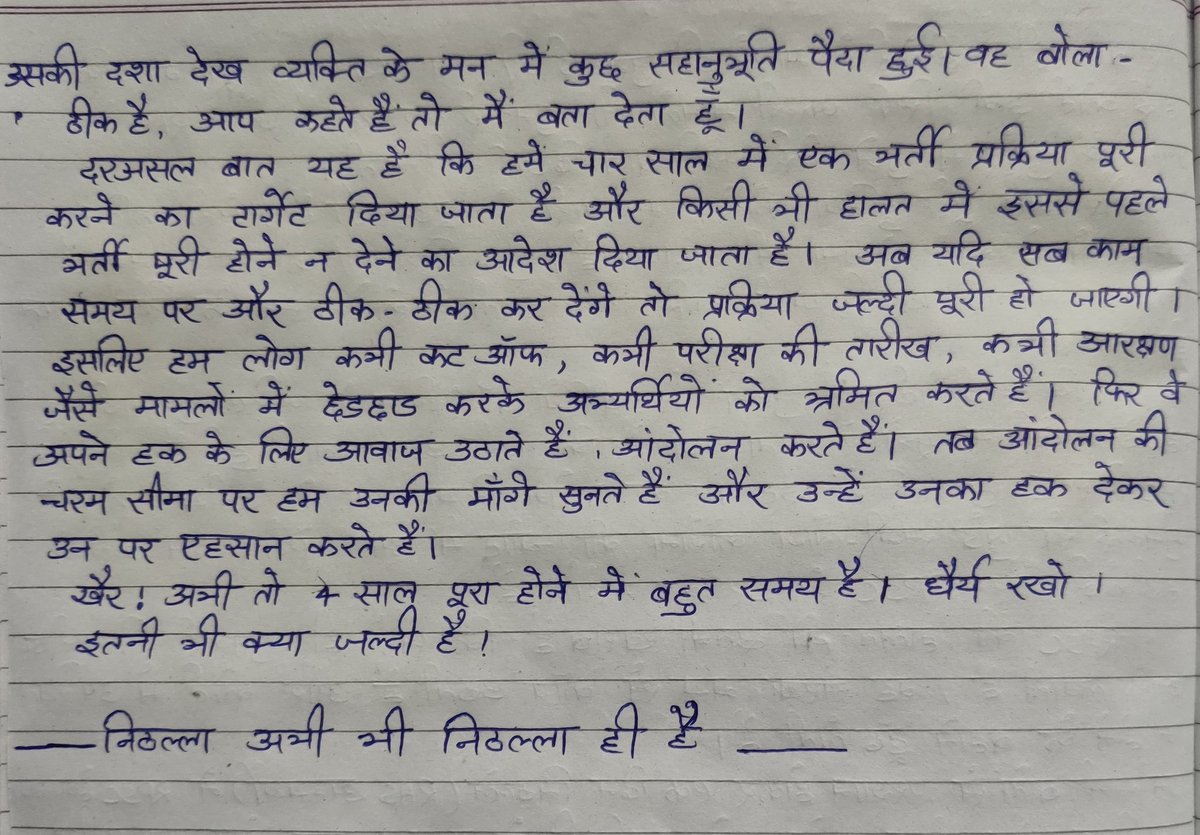 उसकी दशा देख व्यक्ति के मन में कुछ सहानुभूति पैदा हुई। वह बोला -
ठीक है, आप कहते हैं तो मैं बता देता हूँ।
दरअसल बात यह है कि हमें चार साल में एक भर्ती प्रक्रिया पूरी
करने का टार्गेट दिया जाता है और किसी भी हालत में इससे पहले
भर्ती पूरी होने न देने का आदेश दिया जाता है। अब यदि सब काम
समय पर और ठीक-ठीक कर देंगे तो प्रक्रिया जल्दी पूरी हो जाएगी।
इसलिए हम लोग कभी कट ऑफ, कभी परीक्षा की तारीख, कभी आरक्षण
जैसे मामलों में छेडछाड करके अभ्यर्थियों को भ्रमित करते हैं। फिर वे
अपने हक के लिए आवाज उठाते हैं, आंदोलन करते हैं। तब आंदोलन की
चरम सीमा पर हम उनकी माँगे सुनते हैं और उन्हें उनका हक देकर
उन पर एहसान करते हैं।
खैर! अभी तो 4 साल पूरा होने में बहुत समय है। धैर्य रखो।
इतनी भी क्या जल्दी है!
—— निठल्ला अभी भी निठल्ला ही है ——